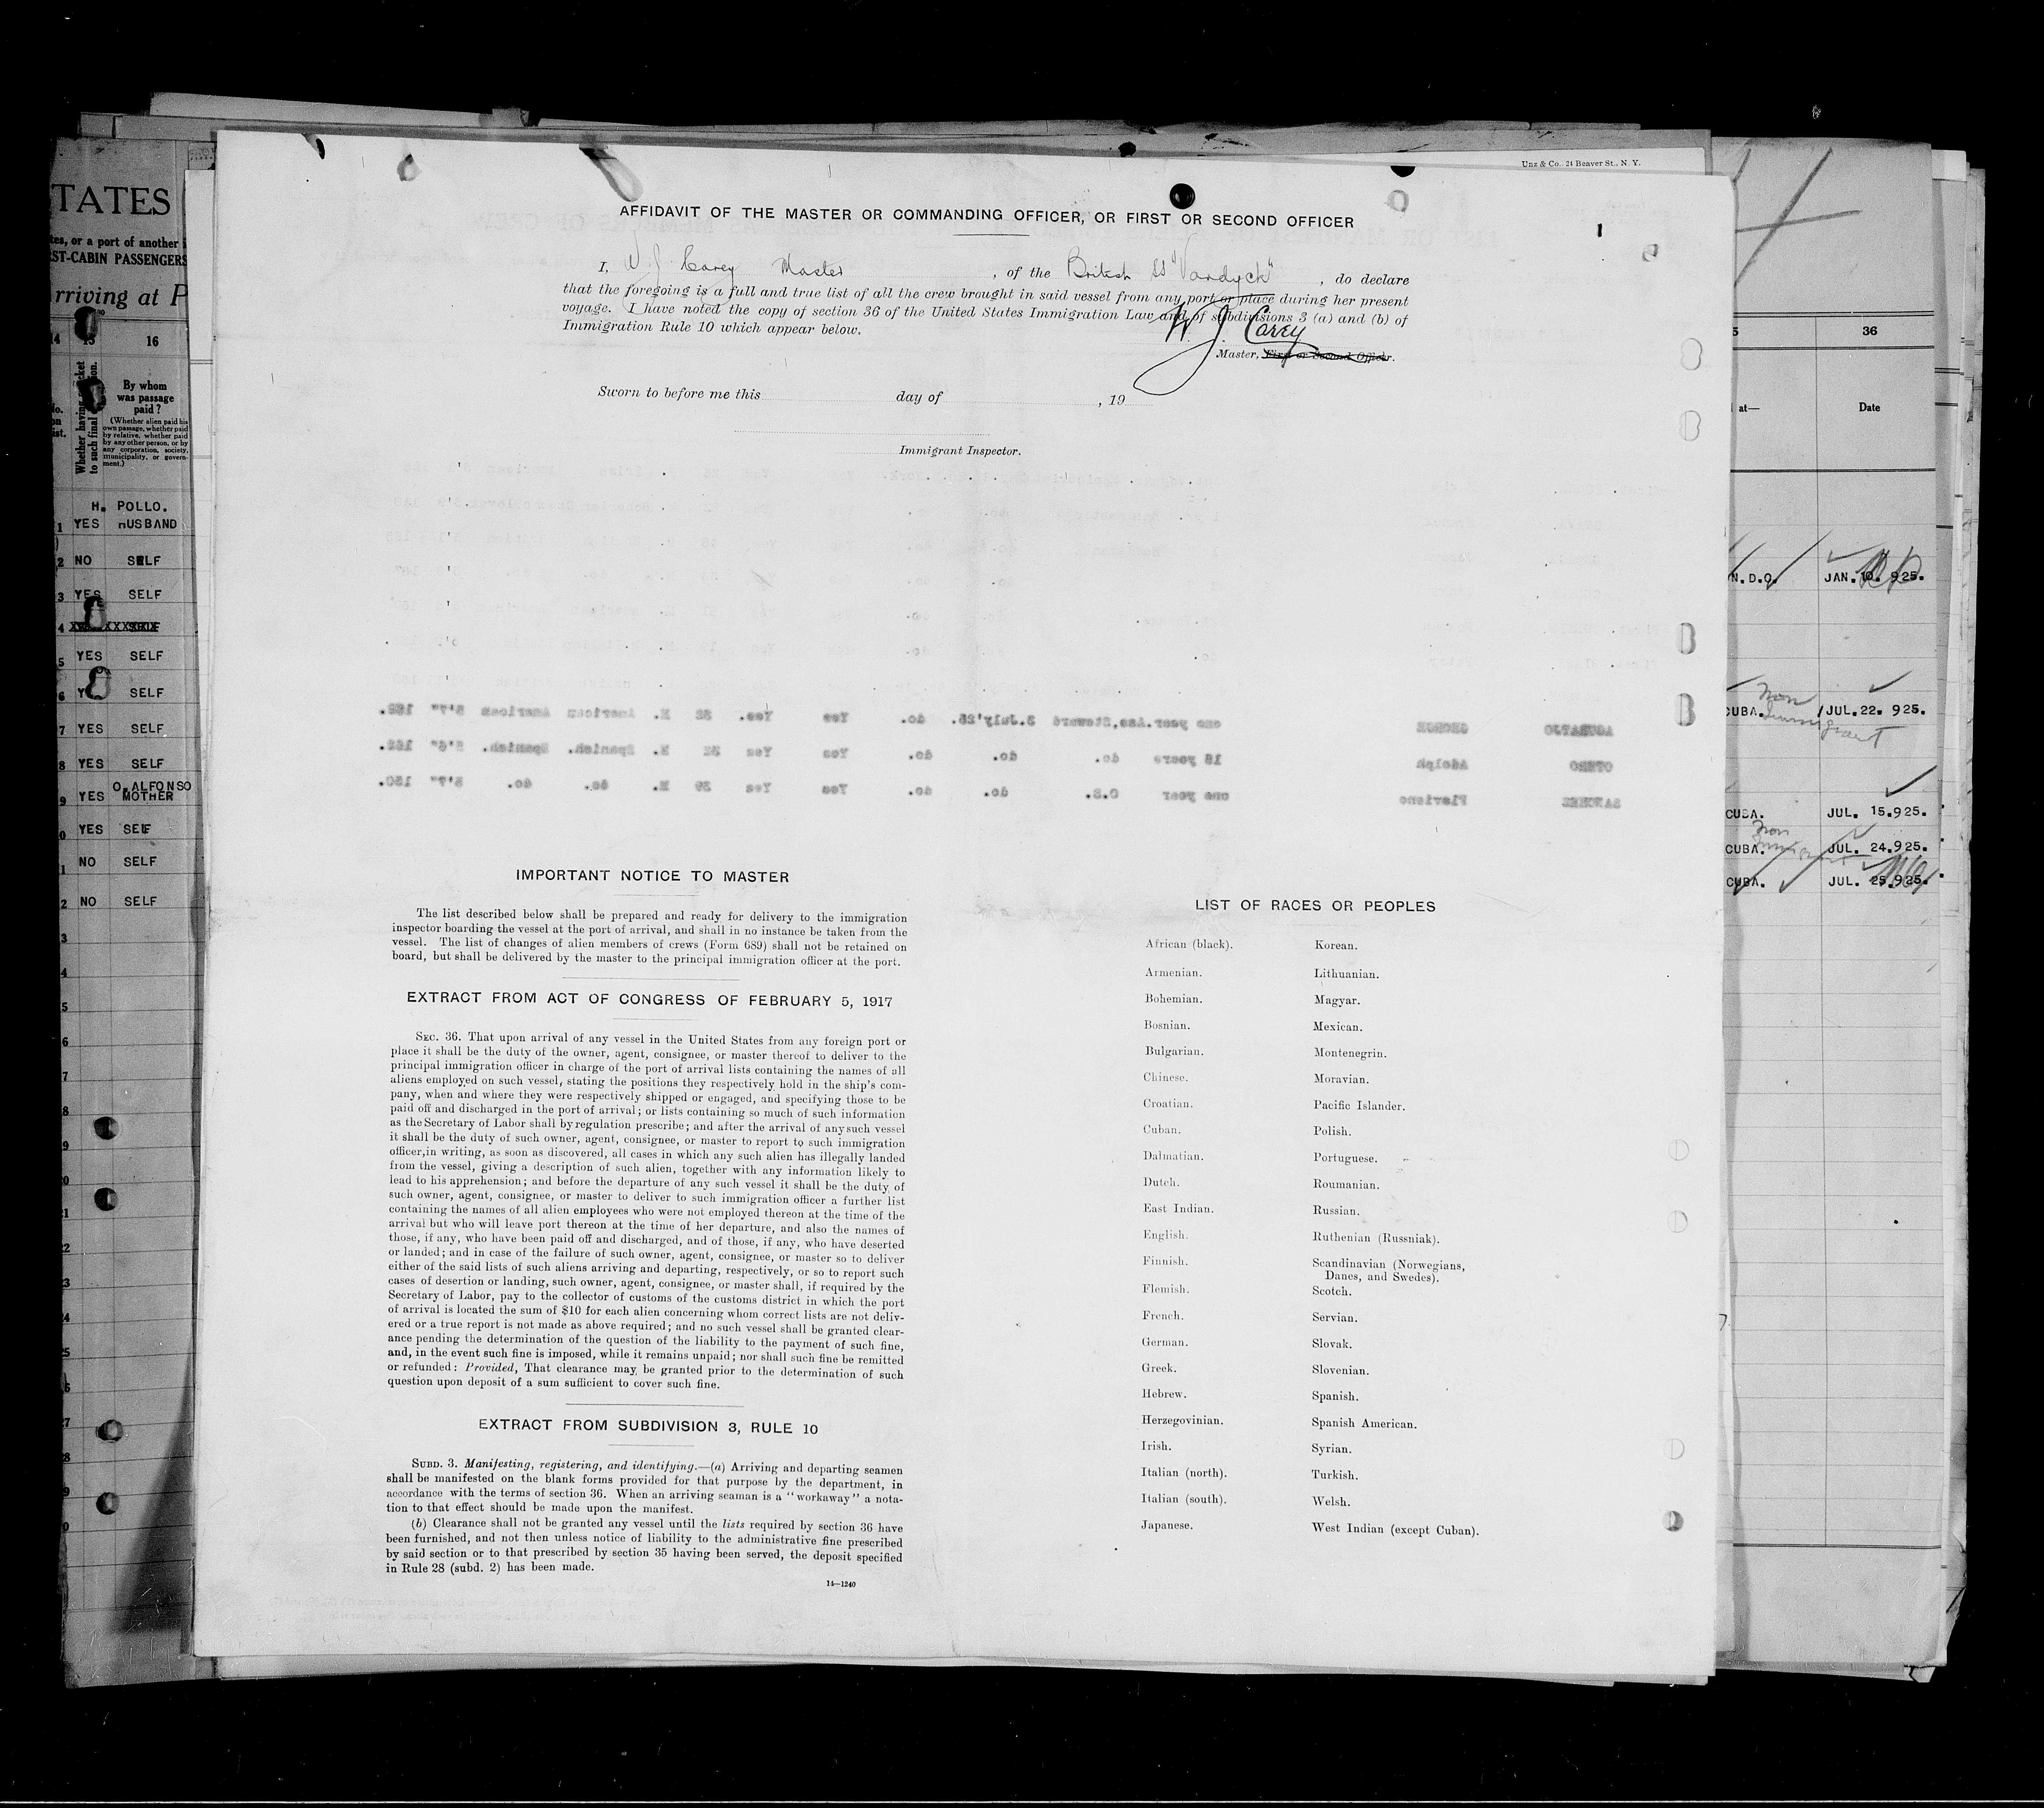 Unz & Co., 24 Beaver St., N. Y.
AFFIDAVIT OF THE MASTER OR COMMANDING OFFICER, OR FIRST OR SECOND OFFICER
I, W. J. Carey Master , of the British SS "Vandyck" , do declare
that the foregoing is a full and true list of all the crew brought in said vessel from any port or place during her present
voyage. I have noted the copy of section 36 of the United States Immigration Law and of subdivisions 3 (a) and (b) of
Immigration Rule 10 which appear below.
W. J. Carey
Master, First or Second Officer.
Sworn to before me this day of , 19
Immigrant Inspector.
AGUSATJO GEORGE one year. Ass,Steward 3.July'25. do. Yes Yes. 32 M. American American 5'7"
OTERO Adolph 15 years do. do. do. Yes Yes 32 M. Spanish. Spanish. 5'6"
SANCHES Floriano one year O.S. do. do. Yes Yes 39 M. do. do. 5'7" 150.
IMPORTANT NOTICE TO MASTER
The list described below shall be prepared and ready for delivery to the immigration
inspector boarding the vessel at the port of arrival, and shall in no instance be taken from the
vessel. The list of changes of alien members of crews (Form 689) shall not be retained on
board, but shall be delivered by the master to the principal immigration officer at the port.
EXTRACT FROM ACT OF CONGRESS OF FEBRUARY 5, 1917
SEC. 36. That upon arrival of any vessel in the United States from any foreign port or
place it shall be the duty of the owner, agent, consignee, or master thereof to deliver to the
principal immigration officer in charge of the port of arrival lists containing the names of all
aliens employed on such vessel, stating the positions they respectively hold in the ship's com-
pany, when and where they were respectively shipped or engaged, and specifying those to be
paid off and discharged in the port of arrival; or lists containing so much of such information
as the Secretary of Labor shall by regulation prescribe; and after the arrival of any such vessel
it shall be the duty of such owner, agent, consignee, or master to report to such immigration
officer, in writing, as soon as discovered, all cases in which any such alien has illegally landed
from the vessel, giving a description of such alien, together with any information likely to
lead to his apprehension; and before the departure of any such vessel it shall be the duty of
such owner, agent, consignee, or master to deliver to such immigration officer a further list
containing the names of all alien employees who were not employed thereon at the time of the
arrival but who will leave port thereon at the time of her departure, and also the names of
those, if any, who have been paid off and discharged, and of those, if any, who have deserted
or landed; and in case of the failure of such owner, agent, consignee, or master so to deliver
either of the said lists of such aliens arriving and departing, respectively, or so to report such
cases of desertion or landing, such owner, agent, consignee, or master shall, if required by the
Secretary of Labor, pay to the collector of customs of the customs district in which the port
of arrival is located the sum of $10 for each alien concerning whom correct lists are not deliv-
ered or a true report is not made as above required; and no such vessel shall be granted clear-
ance pending the determination of the question of the liability to the payment of such fine,
and, in the event such fine is imposed, while it remains unpaid; nor shall such fine be remitted
or refunded: Provided, That clearance may be granted prior to the determination of such
question upon deposit of a sum sufficient to cover such fine.
EXTRACT FROM SUBDIVISION 3, RULE 10
SUBD. 3. Manifesting, registering, and identifying.—(a) Arriving and departing seamen
shall be manifested on the blank forms provided for that purpose by the department, in
accordance with the terms of section 36. When an arriving seaman is a "workaway" a nota-
tion to that effect should be made upon the manifest.
(b) Clearance shall not be granted any vessel until the lists required by section 36 have
been furnished, and not then unless notice of liability to the administrative fine prescribed
by said section or to that prescribed by section 35 having been served, the deposit specified
in Rule 28 (subd. 2) has been made.
14—1240
LIST OF RACES OR PEOPLES
African (black). Korean.
Armenian. Lithuanian.
Bohemian. Magyar.
Bosnian. Mexican.
Bulgarian. Montenegrin.
Chinese. Moravian.
Croatian. Pacific Islander.
Cuban. Polish.
Dalmatian. Portuguese.
Dutch. Roumanian.
East Indian. Russian.
English. Ruthenian (Russniak).
Finnish. Scandinavian (Norwegians,
Danes, and Swedes).
Flemish. Scotch.
French. Servian.
German. Slovak.
Greek. Slovenian.
Hebrew. Spanish.
Herzegovinian. Spanish American.
Irish. Syrian.
Italian (north). Turkish.
Italian (south). Welsh.
Japanese. West Indian (except Cuban).
TATES
tes, or a port of another
ST-CABIN PASSENGERS
rriving at P
16
Whether having
to such final
By whom
was passage
paid?
(Whether alien paid his
own passage, whether paid
by relative, whether paid
by any other person, or by
any corporation, society,
municipality, or govern-
ment.)
H. POLLO.
1 YES HUSBAND
2 NO SELF
3 YES SELF
4 SELF
5 YES SELF
6 SELF
7 YES SELF
8 YES SELF
O. ALFONSO
9 YES MOTHER
0 YES SELF
1 NO SELF
2 NO SELF
3
4
5
6
7
8
9
0
21
22
23
24
25
6
27
28
9
0
5 36
at— Date
N.D.O. JAN. 10. 925.
CUBA. JUL. 22. 925.
Non
Immigrant
CUBA. JUL. 15.925.
Non
CUBA. JUL. 24.925.
CUBA. JUL. 25.925.